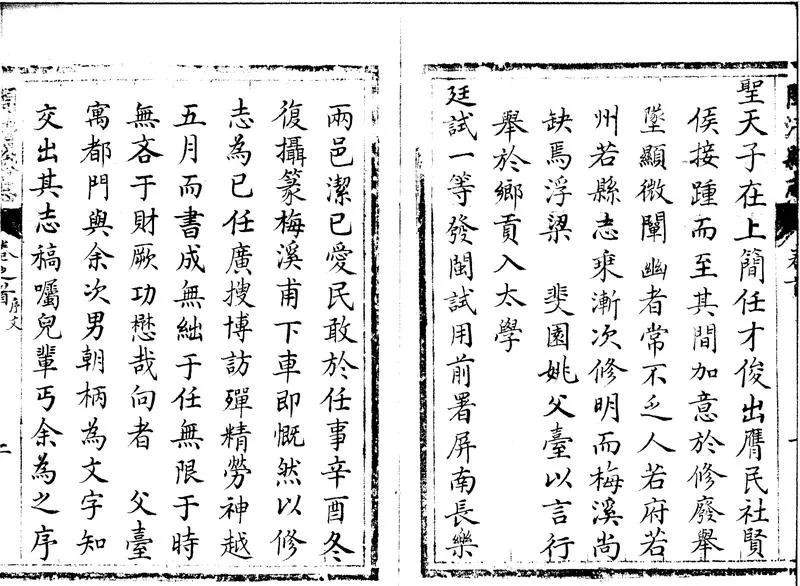 聖天子在上簡任才俊出膺民社賢
侯接踵而至其間加意於修廢舉
墜顯微闡幽者常不乏人若府若
州若縣志乘漸次修明而梅溪尚
缺焉浮梁 斐園姚父臺以言行
舉於鄉貢入太學
廷試一等發閩試用前署屏南長樂
兩邑潔已愛民敢於任事辛酉冬
復攝篆梅溪甫下車即慨然以修
志為已任廣搜博訪殫精勞神越
五月而書成無絀于任無限于時
無吝于財厥功懋哉向者 父臺
寓都門與余次男朝柄為文字知
交出其志稿囑兒輩丐余為之序
卷之首 序文
二